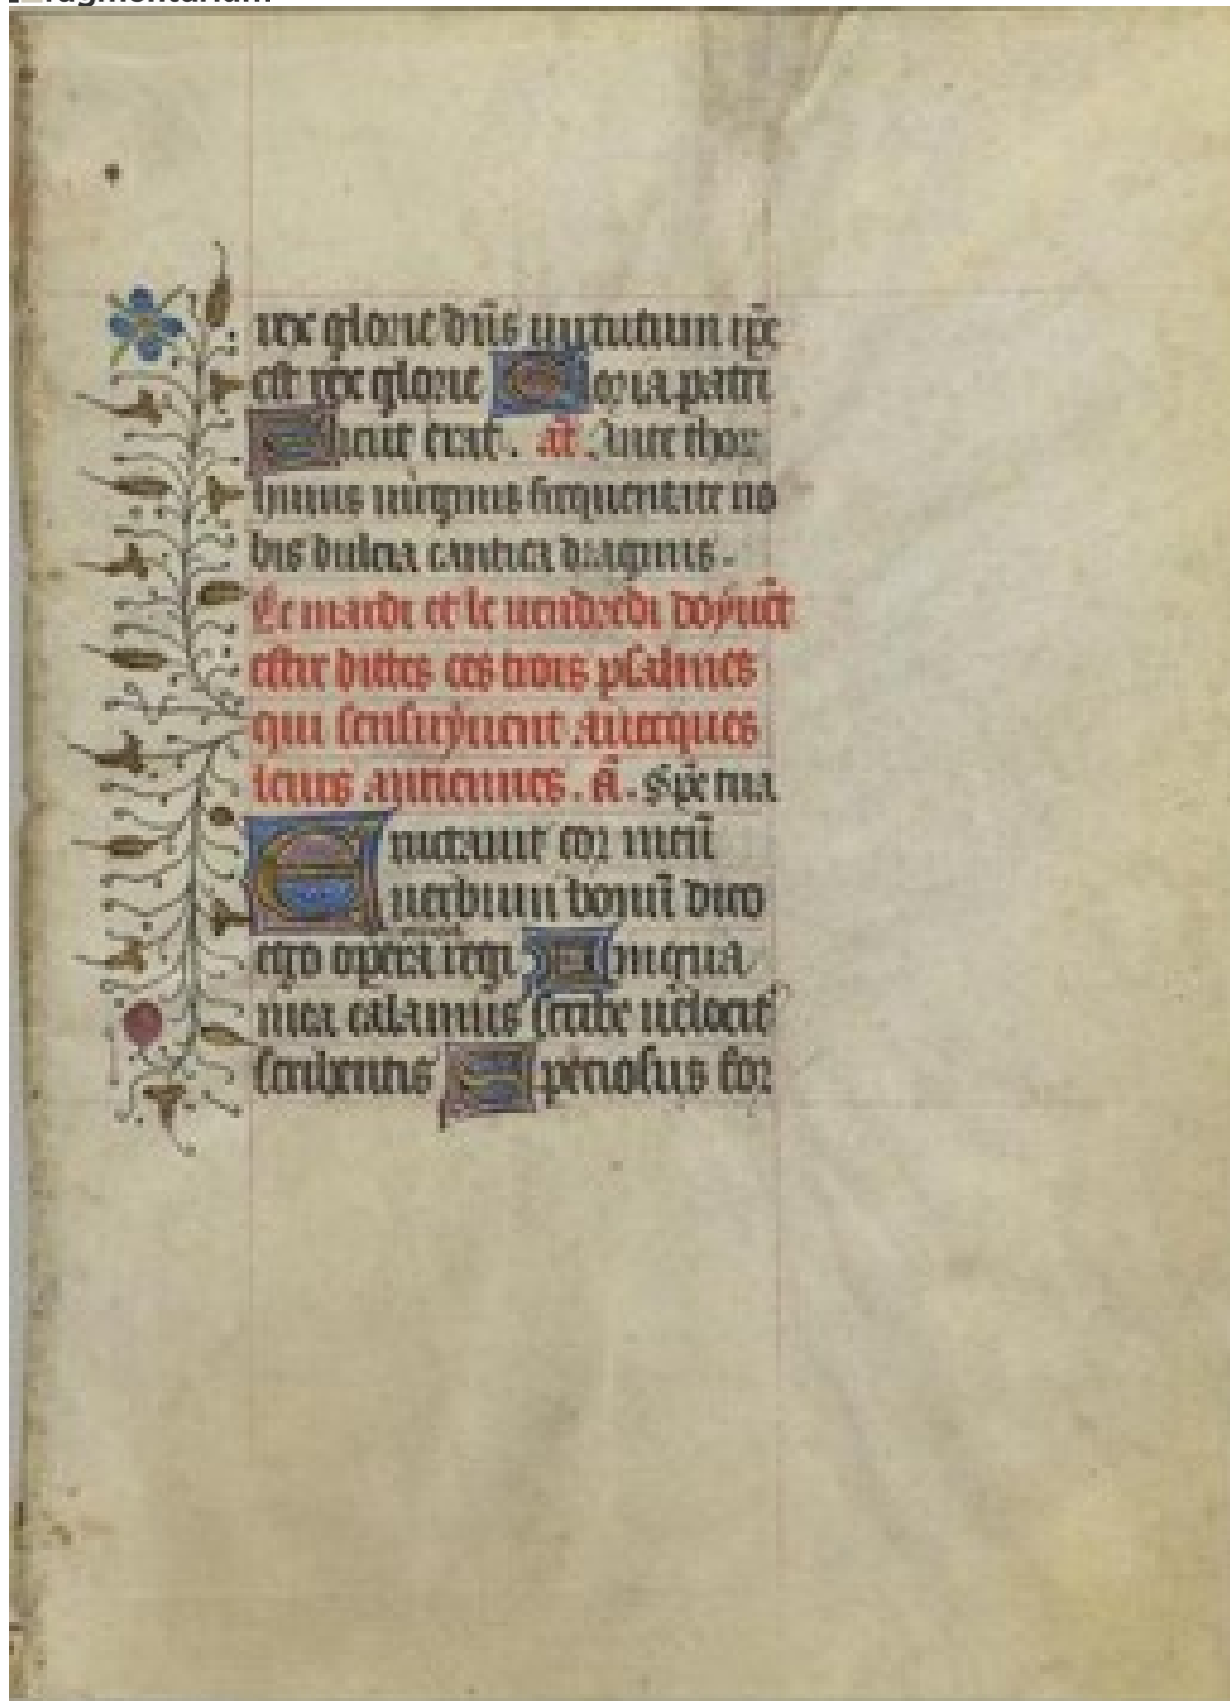 Fragmentarium
rex glorie dn̄s uirtutum ip̄e
est rex glorie Gloria patri
Sicut erat. an̄. Ante thor
huius uirginis frequentate no
bis dulcia cantica dragmis.
Le mardi et le uendredi doyuēt
estre dittes ces trois psalmes
qui sensuyuent auecques
leurs antiennes. A. Spē tua
Eructauit cor meū
uerbum bonū dico
ego opera regi Lingua
mea calamus scribe uelocit̄
scribentis Speciosus for